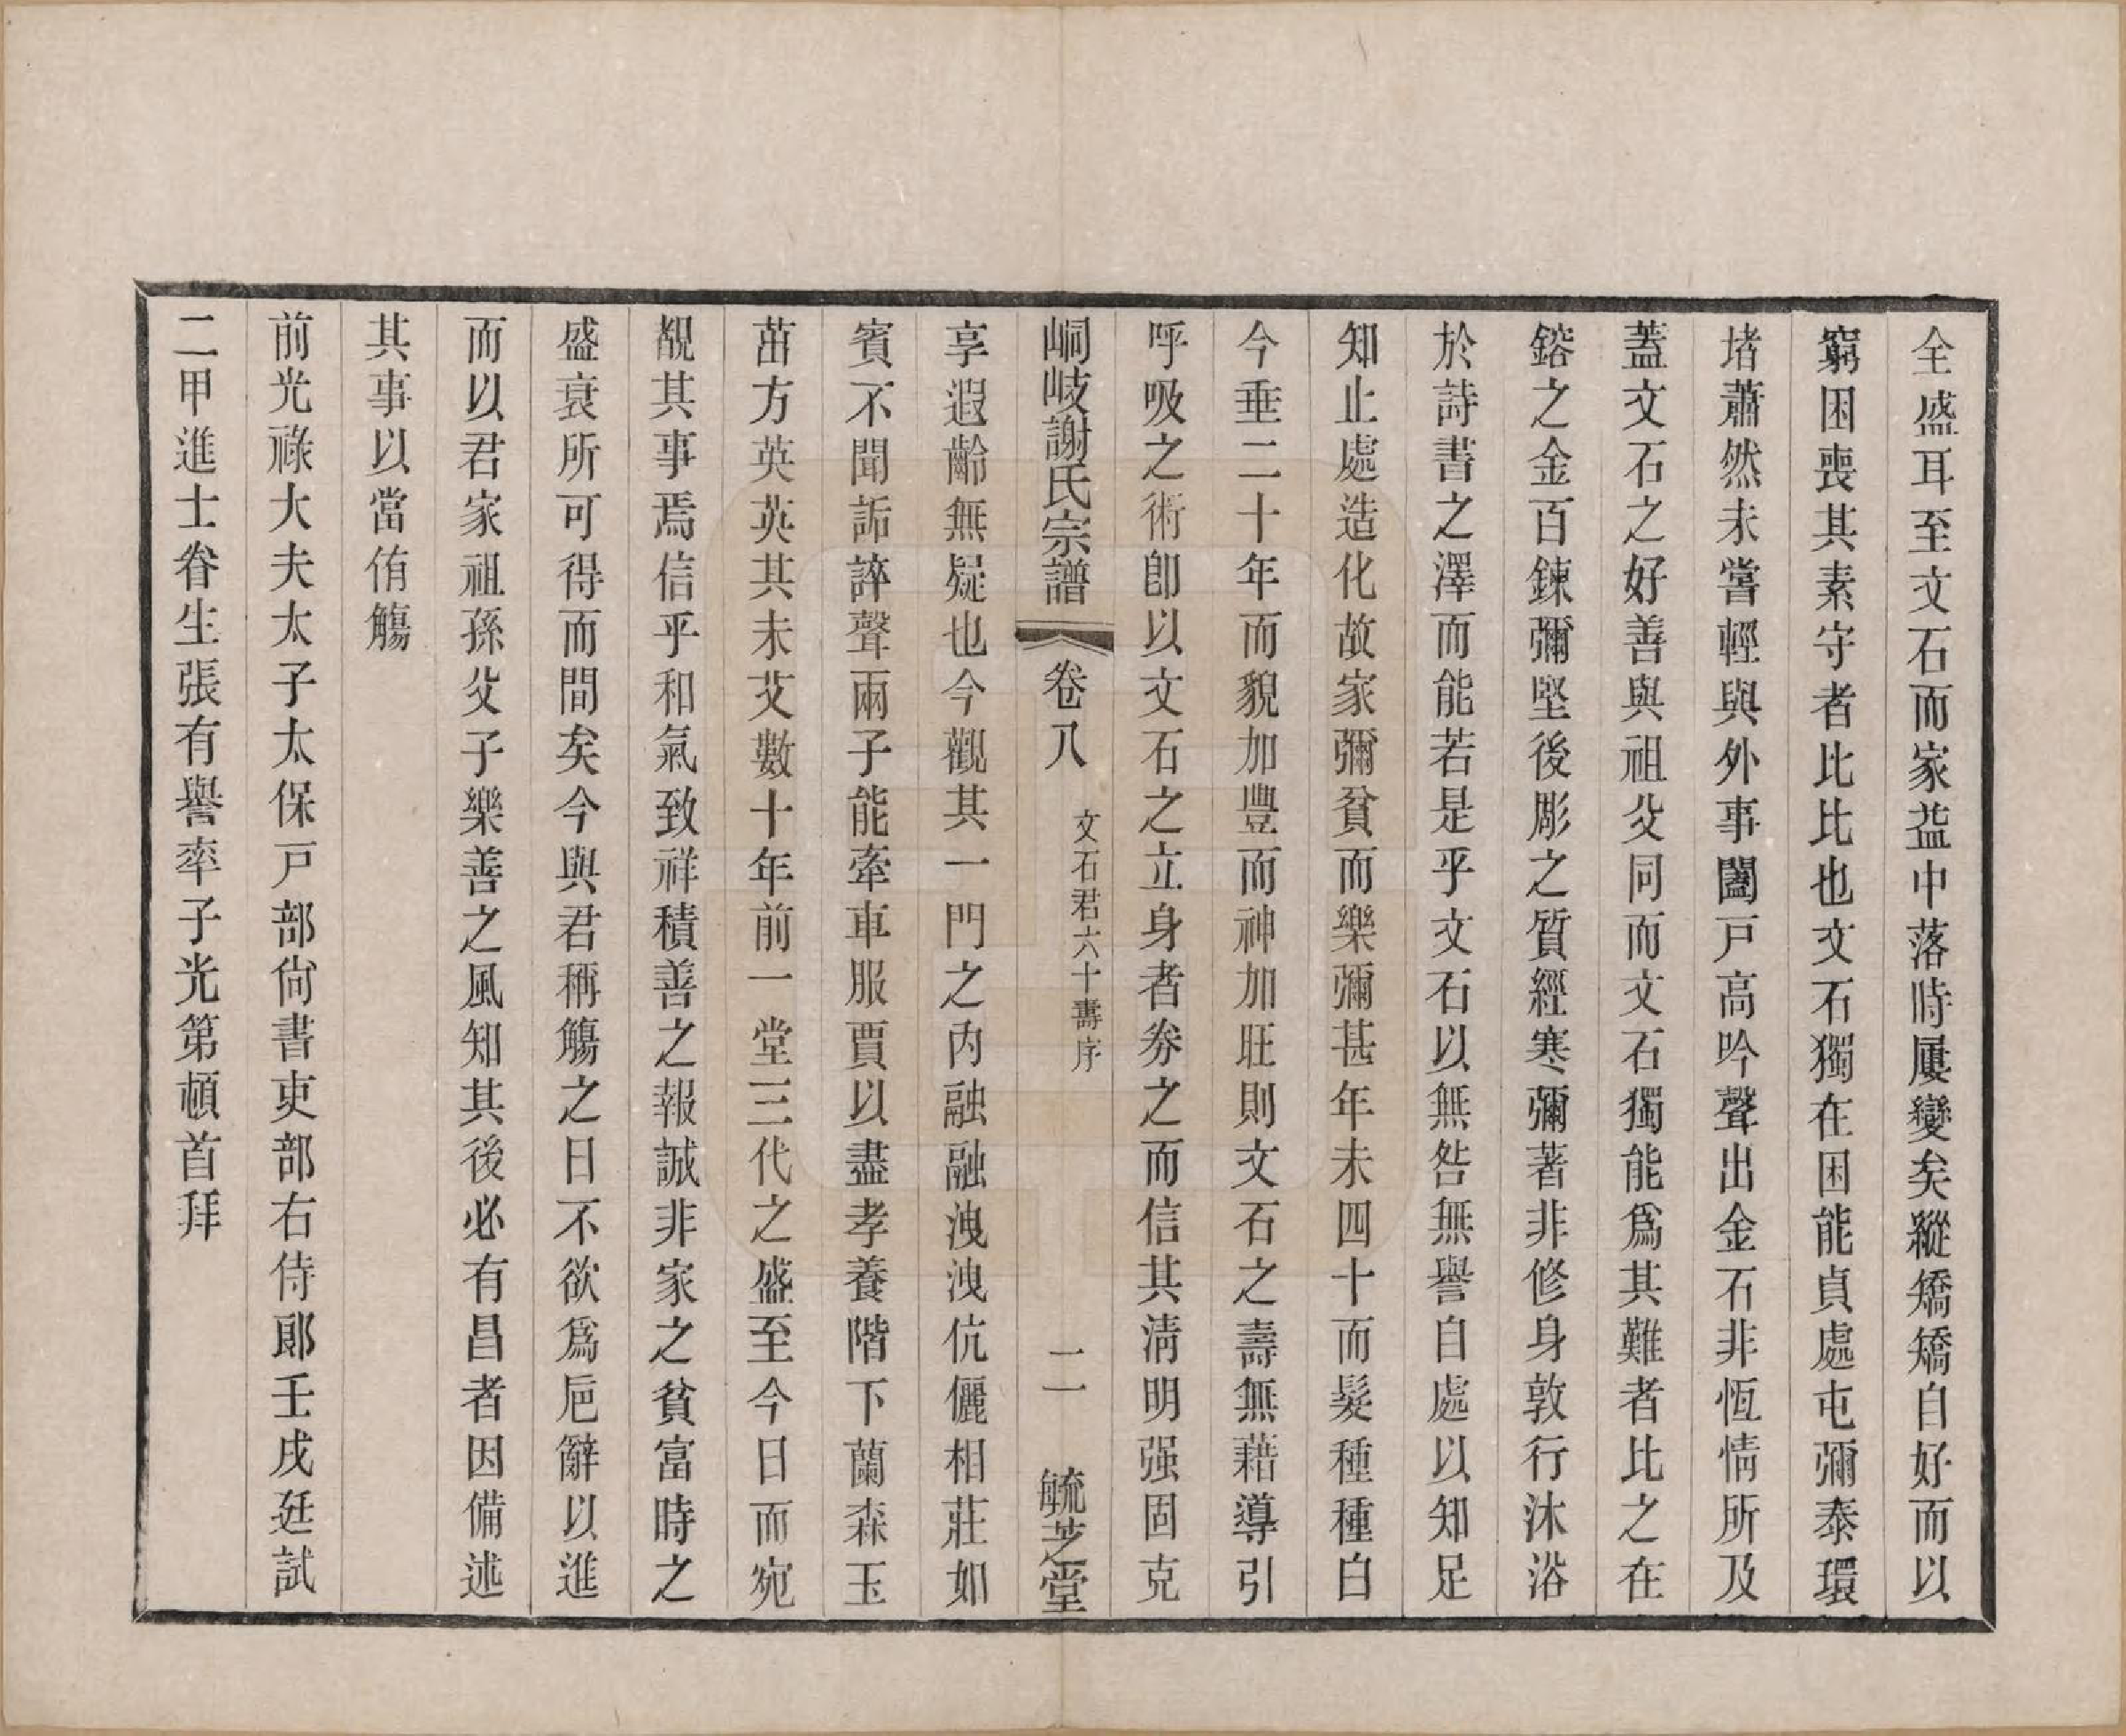 全盛耳至文石而家益中落時屢變矣縱矯矯自好而以
窮困喪其素守者比比也文石獨在困能貞處屯彌泰環
堵蕭然未嘗輕與外事闔戸高吟聲出金石非恆情所及
蓋文石之好善與祖父同而文石獨能爲其難者比之在
鎔之金百鍊彌堅後彫之質經寒彌著非修身敦行沐浴
於詩書之澤而能若是乎文石以無咎無譽自處以知足
知止處造化故家彌貧而樂彌甚年未四十而髮種種白
今垂二十年而貌加豐而神加旺則文石之壽無藉導引
呼吸之術卽以文石之立身者券之而信其淸明强固克
峒岐謝氏宗譜 卷八 文石君六十壽序 二 毓芝堂
享遐齡無疑也今觀其一門之內融融洩洩伉儷相莊如
賓不聞詬誶聲兩子能牽車服賈以盡孝養階下蘭森玉
茁方英英其未艾數十年前一堂三代之盛至今日而宛
覩其事焉信乎和氣致祥積善之報誠非家之貧富時之
盛衰所可得而間矣今與君稱觴之日不欲爲卮辭以進
而以君家祖孫父子樂善之風知其後必有昌者因備述
其事以當侑觴
前光祿大夫太子太保戸部尙書吏部右侍郎壬戌廷試
二甲進士眷生張有譽率子光第頓首拜